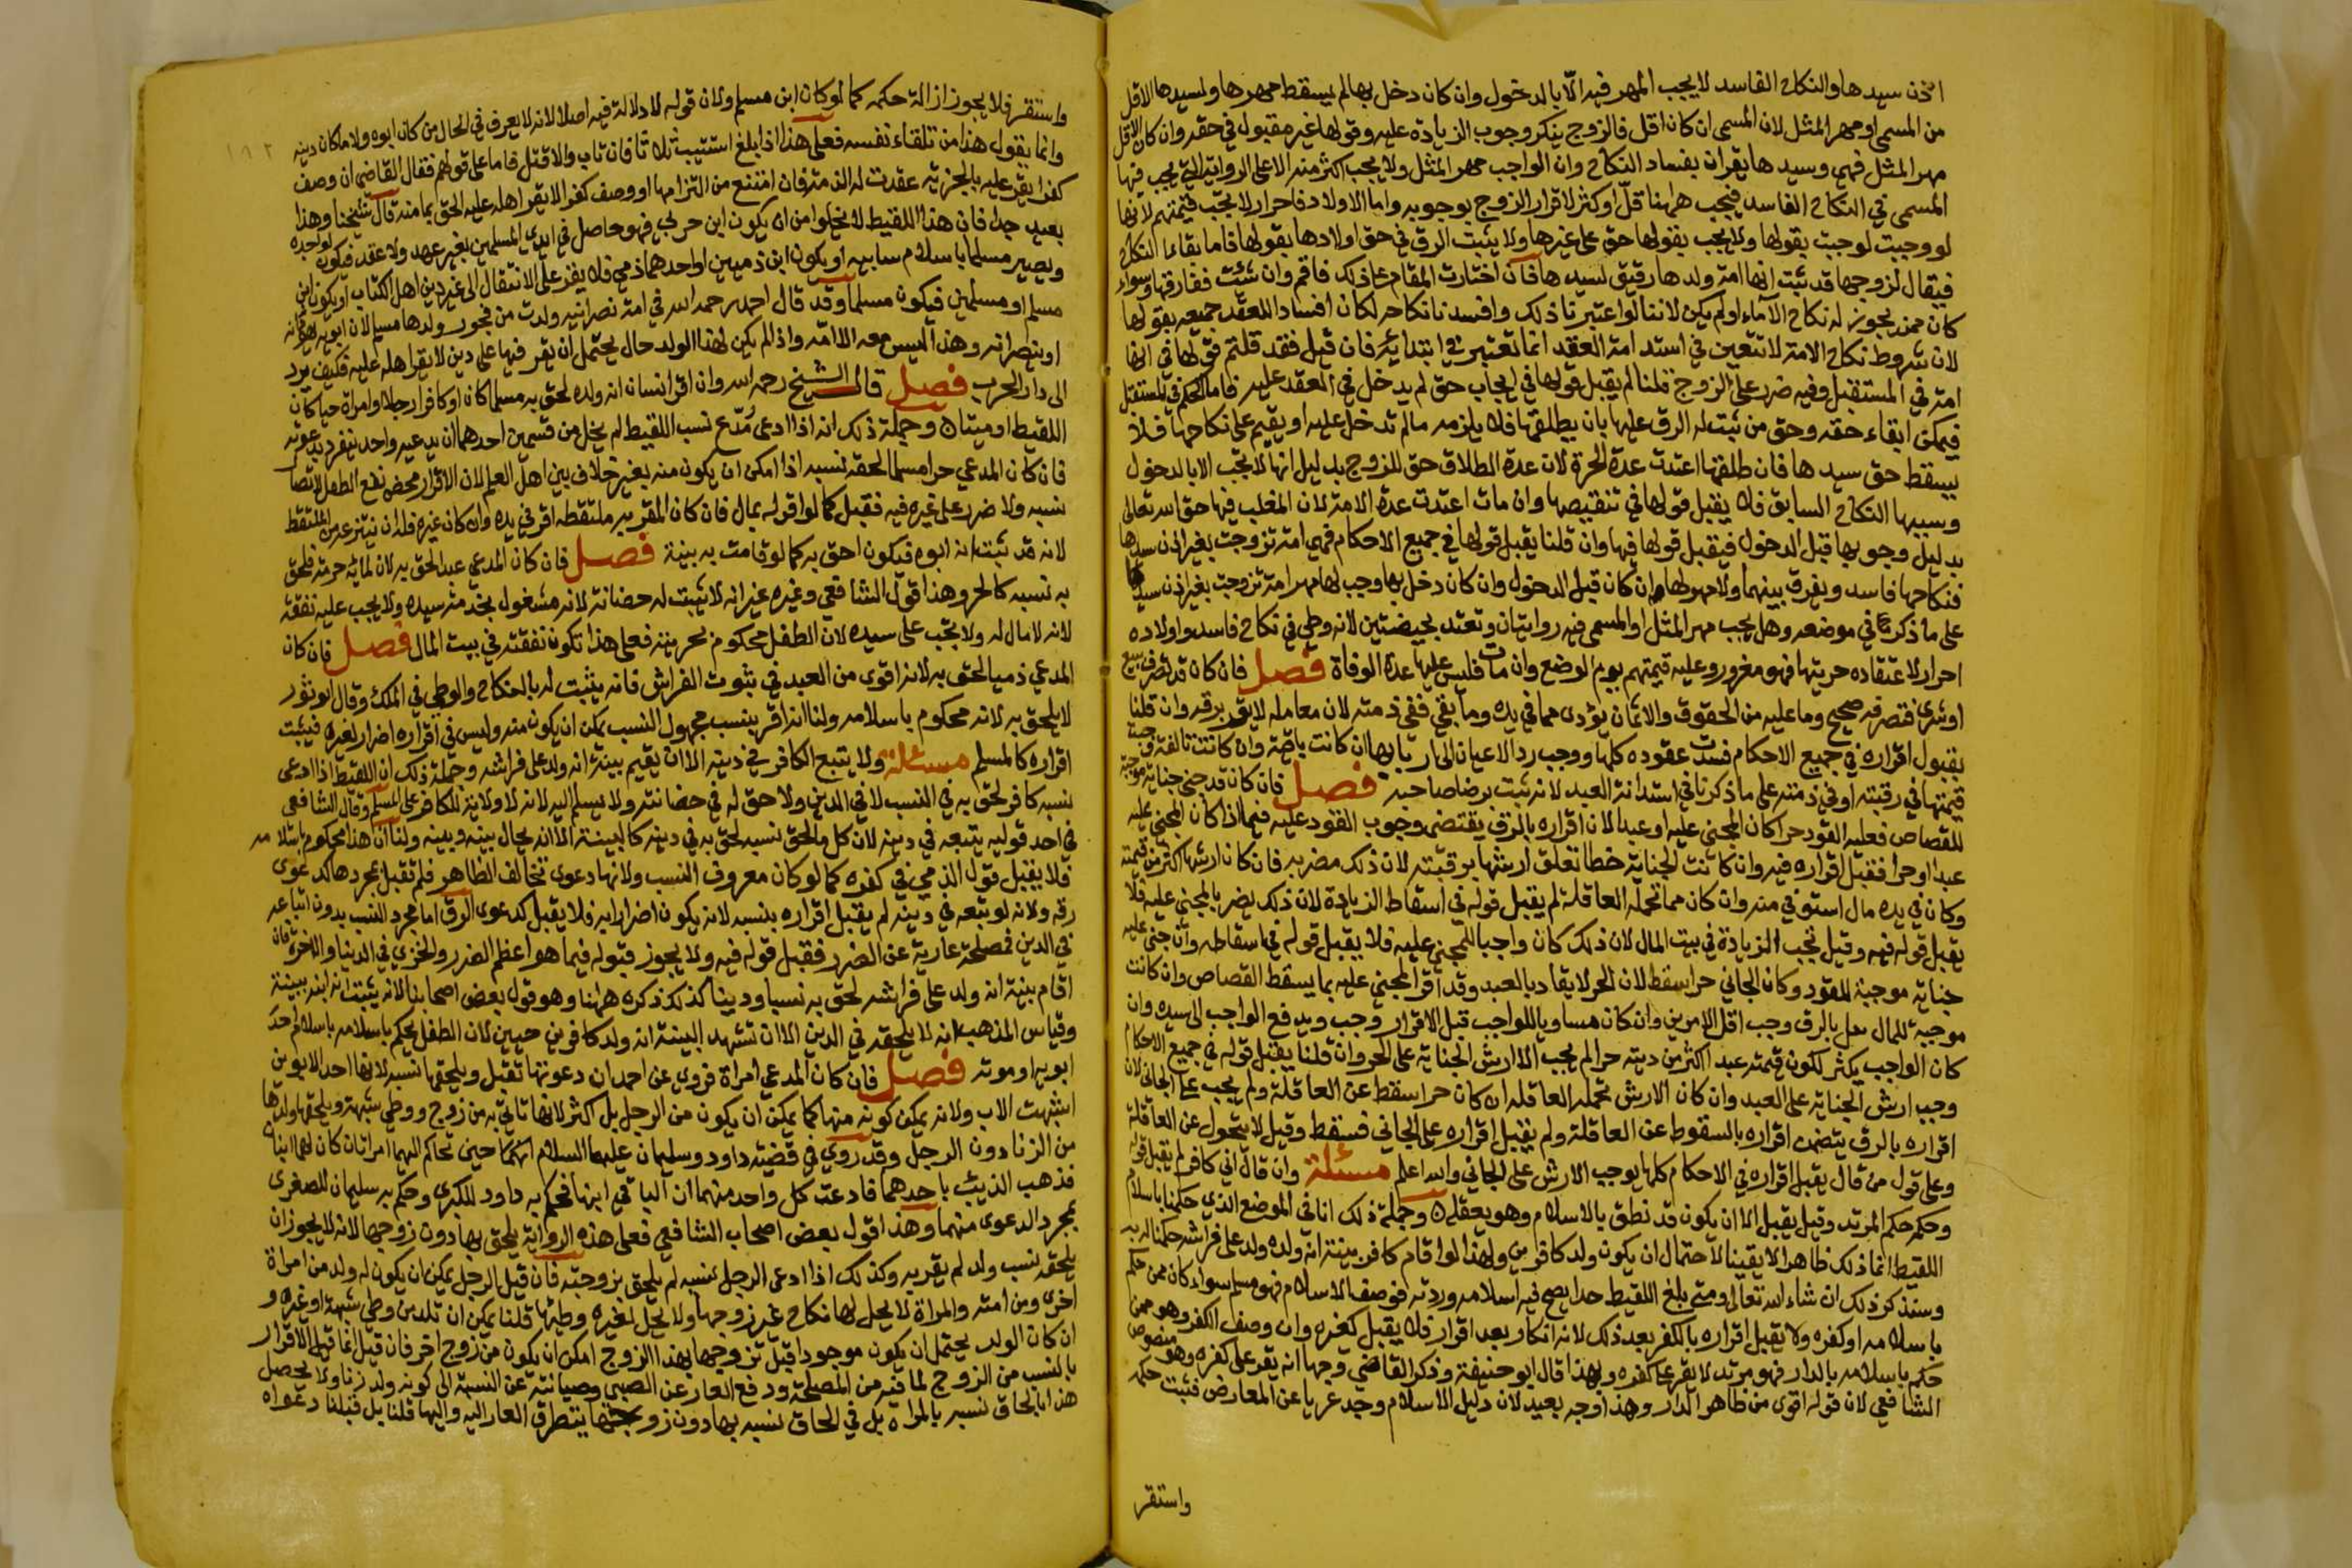 اذن سيدها والنكاح الفاسد لا يجب المهر فيه الا بالدخول وان كان دخل بها لم يسقط مهرها ولسيدها الاقل
من المسمى او مهر المثل لان المسمى ان كان اقل فالزوج ينكر وجوب الزيادة عليه وقولها غير مقبول في حقه وان كان الاقل
مهر المثل فهي وسيدها يقران بفساد النكاح وان الواجب مهر المثل ولا يجب اكثر منه الا على الرواية التي يجب فيها
المسمى في النكاح الفاسد فيجب ههنا قل او كثر لاقرار الزوج بوجوبه واما الاولاد فاحرار لا تجب قيمتهم لانها
لو وجبت لوجبت بقولها ولا يجب بقولها حق على غيرها ولا يثبت الرق في حق اولادها بقولها فاما بقاء النكاح
فيقال لزوجها قد ثبت انها امة ولدها رقيق لسيدها فان اخترت المقام على ذلك فاقم وان شئت ففارقها وسواء
كان ممن يجوز له نكاح الاماء او لم يكن لاننا لو اعتبرنا ذلك وافسدنا نكاحه لكان افسادا للعقد جميعه بقولها
لان شروط نكاح الامة لا تتعين في استدامة العقد انما تعتبر في ابتدائه فان قيل فقد قلتم قولها في انها
امة في المستقبل وفيه ضرر على الزوج قلنا لم يقبل قولها في ايجاب حق لم يدخل في العقد عليه فاما الحكم في المستقبل
فيمكن ايفاء حقه وحق من ثبت له الرق عليها بان يطلقها فلا يلزمه مالم تدخل عليه او يقيم على نكاحها فلا
يسقط حق سيدها فان طلقها اعتدت عدة الحرة لان عدة الطلاق حق للزوج بدليل انها لا تجب الا بالدخول
وسببها النكاح السابق فلا يقبل قولها في تنقيصها وان مات اعتدت عدة الامة لان المغلب فيها حق الله تعالى
بدليل وجوبها قبل الدخول فيقبل قولها فيها وان قلنا يقبل قولها في جميع الاحكام فهي امة تزوجت بغير اذن سيدها
فنكاحها فاسد ويفرق بينهما ولا مهر لها وان كان قبل الدخول وان كان دخل بها وجب لها مهر امة تزوجت بغير اذن سيدها
على ما ذكرنا في موضعه وهل يجب مهر المثل او المسمى فيه روايتان وتعتد بحيضتين لانه وطئ في نكاح فاسد واولاده
احرار لاعتقاده حريتها فهو مغرور وعليه قيمتهم يوم الوضع وان مات فليس عليها عدة الوفاة فصل فان كان قد تصرف ببيع
او شرى فتصرفه صحيح وما عليه من الحقوق والاثمان يؤدى مما في يده وما بقي ففي ذمته لان معامله لا يقر برقه وان قلنا
بقبول اقراره في جميع الاحكام فسدت عقوده كلها ووجب رد الاعيان الى اربابها ان كانت باقية وان كانت تالفة وجبت
قيمتها في رقبته او في ذمته على ما ذكرنا في استدانة العبد لانه ثبت برضا صاحبه فصل فان كان قد جنى جناية موجبة
للقصاص فعليه القود حرا كان المجني عليه او عبدا لان اقراره بالرق يقتضي وجوب القود عليه فيما اذا كان المجني عليه
عبدا او حرا فقبل اقراره فيه وان كانت الجناية خطا تعلق ارشها برقبته لان ذلك مضر به فان كان ارشها اكثر من قيمته
وكان في يده مال استوفي منه وان كان مما تحمله العاقلة لم يقبل قوله في اسقاط الزيادة لان ذلك يضر بالمجني عليه فلا
يقبل قوله فيه وقيل تجب الزيادة في بيت المال لان ذلك كان واجبا للمجني عليه فلا يقبل قوله في اسقاطه وان جنى عليه
جناية موجبة للقود وكان الجاني حرا سقط لان الحر لا يقاد بالعبد وقد اقر المجني عليه بما يسقط القصاص وان كانت
موجبة للمال بالرق وجب اقل الامرين وان كان مساويا للواجب قبل الاقرار وجب ويدفع الواجب الى سيده وان
كان الواجب يكثر لكون قيمته عبد اكثر من ديته حرا لم يجب الا ارش الجناية على الحر وان قلنا يقبل قوله في جميع الاحكام
وجب ارش الجناية على العبد وان كان الارش تحمله العاقلة ان كان حرا سقط عن العاقلة ولم يجب على الجاني لان
اقراره بالرق يتضمن اقراره بالسقوط عن العاقلة ولم يقبل اقراره على الجاني فسقط وقيل لا يتحول عن العاقلة
وعلى قول من قال يقبل اقراره في الاحكام كلها يوجب الارش على الجاني والله اعلم مسئلة وان قال اني كافر لم يقبل قوله
وحكمه حكم المرتد وقيل يقبل الا ان يكون قد نطق بالاسلام وهو يعقله وجملة ذلك انا في الموضع الذي حكمنا باسلام
اللقيط انما ذلك ظاهرا لا يقينا لاحتمال ان يكون ولد كافرين ولهذا لو اقام كافر بينة انه ولده ولد على فراشه حكمنا له به
وسنذكر ذلك ان شاء الله تعالى ومتى بلغ اللقيط حدا يصح فيه اسلامه وردته فوصف الاسلام فهو مسلم سواء كان ممن حكم
باسلامه او كفره ولا يقبل اقراره بالكفر بعد ذلك لانه انكار بعد اقرار فلا يقبل كغيره وان وصف الكفر وهو ممن
حكم باسلامه بالدار فهو مرتد لا يقر على كفره وبهذا قال ابو حنيفة وذكر القاضي وجها انه يقر على كفره وهو منصوص
الشافعي لان قوله اقوى من ظاهر الدار وهذا وجه بعيد لان دليل الاسلام وجد عريا عن المعارض فثبت حكمه
واستقر
١٨٢
واستقر فلا يجوز ازالة حكمه كما لو كان ابن مسلم ولان قوله لا دلالة فيه اصلا لانه لا يعرف في الحال من كان ابوه ولا ما كان دينه
وانما يقول هذا من تلقاء نفسه فعلى هذا اذا بلغ استتيب ثلاثا فان تاب والا قتل فاما على قولهم فقال القاضي ان وصف
كفرا يقر عليه بالجزية عقدت له الذمة فان امتنع من التزامها او وصف كفرا لا يقر اهله عليه الحق بمامنه قال شيخنا وهذا
بعيد جدا فان هذا اللقيط لا يخلوا من ان يكون ابن حربي فهو حاصل في ايدي المسلمين بغير عهد ولا عقد فيكون لواجده
ويصير مسلما باسلام سابيه او يكون ابن ذميين او احدهما ذمي فلا يقر على الانتقال الى غير دين اهل الكتاب او يكون ابن
مسلم او مسلمين فيكون مسلما وقد قال احمد رحمه الله في امة نصرانية ولدت من فجور ولدها مسلم لان ابويه يهودانه
او ينصرانه وهذا ليس معه الا امه واذا لم يكن لهذا الولد حال يحتمل ان يقر فيها على دين لا يقر اهله عليه فكيف يرد
الى دار الحرب فصل قال الشيخ رحمه الله وان اقر انسان انه ولده لحق به مسلما كان او كافرا رجلا او امراة حيا كان
اللقيط او ميتا وجملة ذلك انه اذا ادعى مدع نسب اللقيط لم يخل من قسمين احدهما ان يدعيه واحد ينفرد بدعوته
فان كان المدعي حرا مسلما لحقه نسبه اذا امكن ان يكون منه بغير خلاف بين اهل العلم لان الاقرار محض نفع الطفل لاتصال
نسبه ولا ضرر على غيره فيه فقبل كما لو اقر له بمال فان كان المقر به ملتقطه اقر في يده وان كان غيره فله ان ينتزعه من الملتقط
لانه قد ثبت انه ابوه فيكون احق به كما لو قامت به بينة فصل فان كان المدعي عبدا لحق به لان لمائه حرمة فلحق
به نسبه كالحر وهذا قول الشافعي وغيره غير انه لا يثبت له حضانة لانه مشغول بخدمة سيده ولا يجب عليه نفقته
لانه لا مال له ولا يجب على سيده لان الطفل محكوم بحريته فعلى هذا تكون نفقته في بيت المال فصل فان كان
المدعي ذميا لحق به لانه اقوى من العبد في ثبوت الفراش فانه يثبت له بالنكاح والوطي في الملك وقال ابو ثور
لا يلحق به لانه محكوم باسلامه ولنا انه اقر بنسب مجهول النسب يمكن ان يكون منه وليس في اقراره اضرار لغيره فيثبت
اقراره كالمسلم مسئلة ولا يتبع الكافر في دينه الا ان يقيم بينة انه ولد على فراشه وجملة ذلك ان اللقيط اذا ادعى
نسبه كافر لحق به في النسب لا في الدين ولا حق له في حضانته ولا يسلم اليه لانه لا ولاية للكافر على المسلم وقال الشافعي
في احد قوليه يتبعه في دينه لان كل ما لحق نسبه لحق به في دينه كالبينة الا انه يحال بينه وبينه ولنا ان هذا محكوم باسلامه
فلا يقبل قول الذمي في كفره كما لو كان معروف النسب ولانها دعوى تخالف الظاهر فلم تقبل بمجردها كدعوى
رقه ولانه لو تبعه في دينه لم يقبل اقراره بنسبه لانه يكون اضرارا به فلا يقبل كدعوى الرق اما مجرد النسب بدون اتباعه
في الدين فمصلحة عارية عن الضرر فقبل قوله فيه ولا يجوز قبوله فيما هو اعظم الضرر والخزي في الدنيا والاخرة فان
اقام بينة انه ولد على فراشه لحق به نسبا ودينا كذلك ذكره ههنا وهو قول بعض اصحابنا لانه يثبت انه ابنه ببينة
وقياس المذهب انه لا يلحقه في الدين الا ان تشهد البينة انه ولد كافرين حيين لان الطفل يحكم باسلامه باسلام احد
ابويه او موته فصل فان كان المدعي امراة فروي عن احمد ان دعوتها تقبل ويلحقها نسبه لانها احد الابوين
اشبهت الاب ولانه يمكن كونه منها كما يمكن ان يكون من الرجل بل اكثر لانها تاتي به من زوج ووطي شبهة ويلحقها ولدها
من الزنا دون الرجل وقد روي في قضية داود وسليمان عليهما السلام انهما حين تحاكم اليهما امراتان كان لهما ابنان
فذهب الذئب باحدهما فادعت كل واحد منهما ان الباقي ابنها فحكم به داود للكبرى وحكم به سليمان للصغرى
بمجرد الدعوى منهما وهذا قول بعض اصحاب الشافعي فعلى هذه الرواية يلحق بها دون زوجها لانه لا يجوز ان
يلحقه نسب ولد لم يقر به وكذلك اذا ادعى الرجل نسبه لم يلحق بزوجته فان قيل الرجل يمكن ان يكون له ولد من امراة
اخرى ومن امته والمراة لا يحل لها نكاح غير زوجها ولا يحل لغيره وطئها قلنا يمكن ان تلد من وطي شبهة او غيره و
ان كان الولد يحتمل ان يكون موجودا قبل تزوجها بهذا الزوج امكن ان يكون من زوج اخر فان قيل انما قبل الاقرار
بالنسب من الزوج لما فيه من المصلحة ودفع العار عن الصبي وصيانته عن النسبة الى كونه ولد زنا ولا يحصل
هذا بالحاق نسبه بالمراة بل في الحاق نسبه بها دون زوجها يتطرق العار اليه واليها قلنا بل قبلنا دعواه